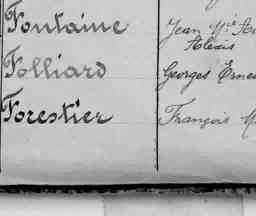 Fontaine Jean
Alexis
Folliard Georges Ernes
Forestier François M